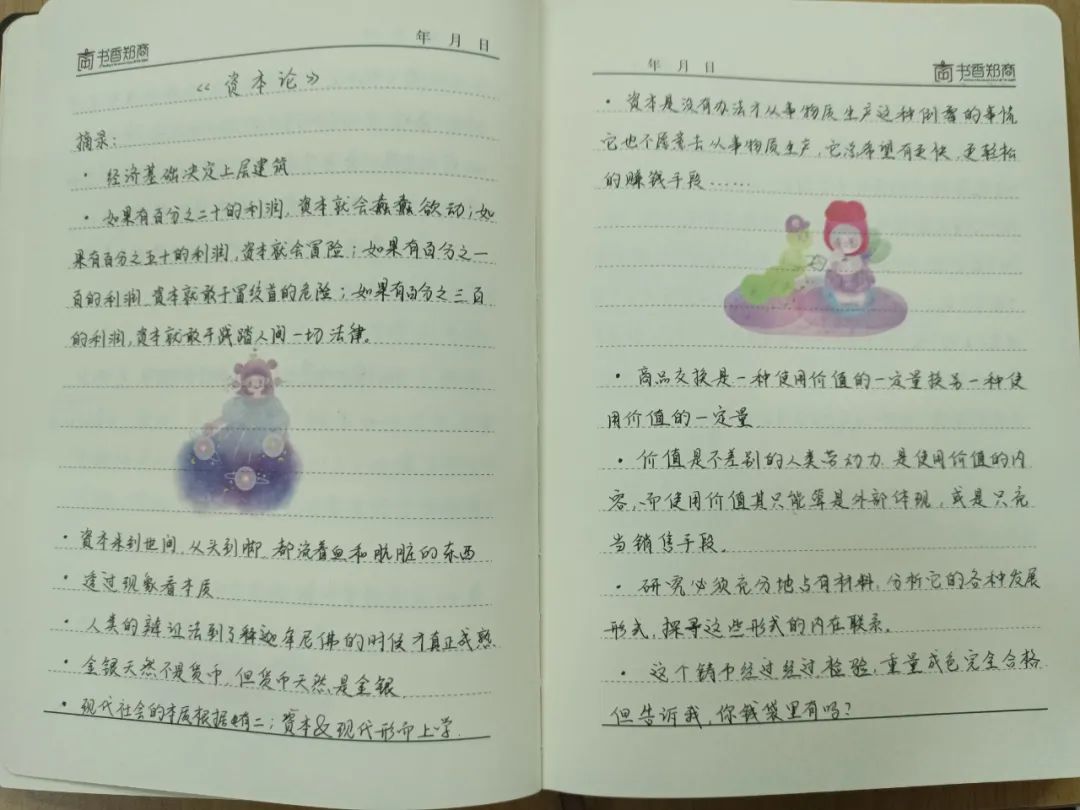 书香郑商
年 月 日
《资本论》
摘录:
· 经济基础决定上层建筑
· 如果有百分之二十的利润,资本就会蠢蠢欲动;如
果有百分之五十的利润,资本就会冒险;如果有百分之一
百的利润,资本就敢于冒绞首的危险;如果有百分之三百
的利润,资本就敢于践踏人间一切法律。
· 资本来到世间,从头到脚,都流着血和肮脏的东西
· 透过现象看本质
· 人类的辩证法到了释迦牟尼佛的时候才真正成熟
· 金银天然不是货币,但货币天然是金银
· 现代社会的本质根据有二:资本&现代形而上学.
年 月 日
书香郑商
· 资本是没有办法才从事物质生产这种倒霉的事情
它也不愿意去从事物质生产,它总希望有更快,更轻松
的赚钱手段……
· 商品交换是一种使用价值的一定量换另一种使
用价值的一定量
· 价值是不差别的人类劳动力,是使用价值的内
容,而使用价值其只能算是外部体现,或是只充
当销售手段。
· 研究必须充分地占有材料,分析它的各种发展
形式,探寻这些形式的内在联系。
· 这个铸币经过经过检验,重量成色完全合格
但告诉我,你钱袋里有吗?